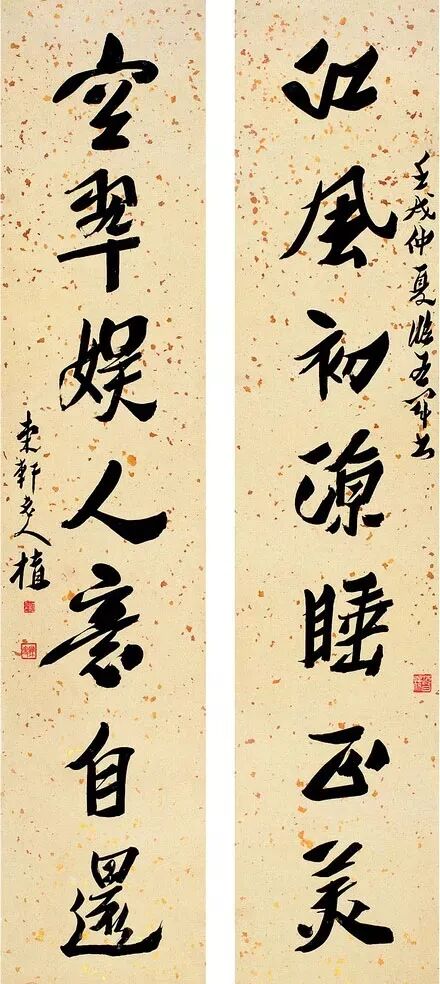 江風初涼睡正美
壬戌仲夏
空翠娛人意自還
東軒老人植